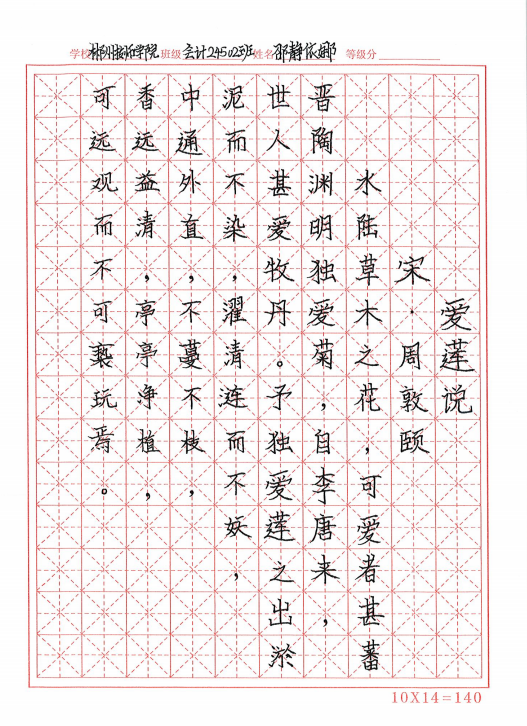 学校郴州技师学院 班级会计245023班 姓名邵静依娜 等级分
爱莲说
宋·周敦颐
水陆草木之花，可爱者甚蕃
晋陶渊明独爱菊，自李唐来，
世人甚爱牧丹。予独爱莲之出淤
泥而不染，濯清涟而不妖，
中通外直，不蔓不枝，
香远益清，亭亭净植，
可远观而不可亵玩焉。
10X14=140